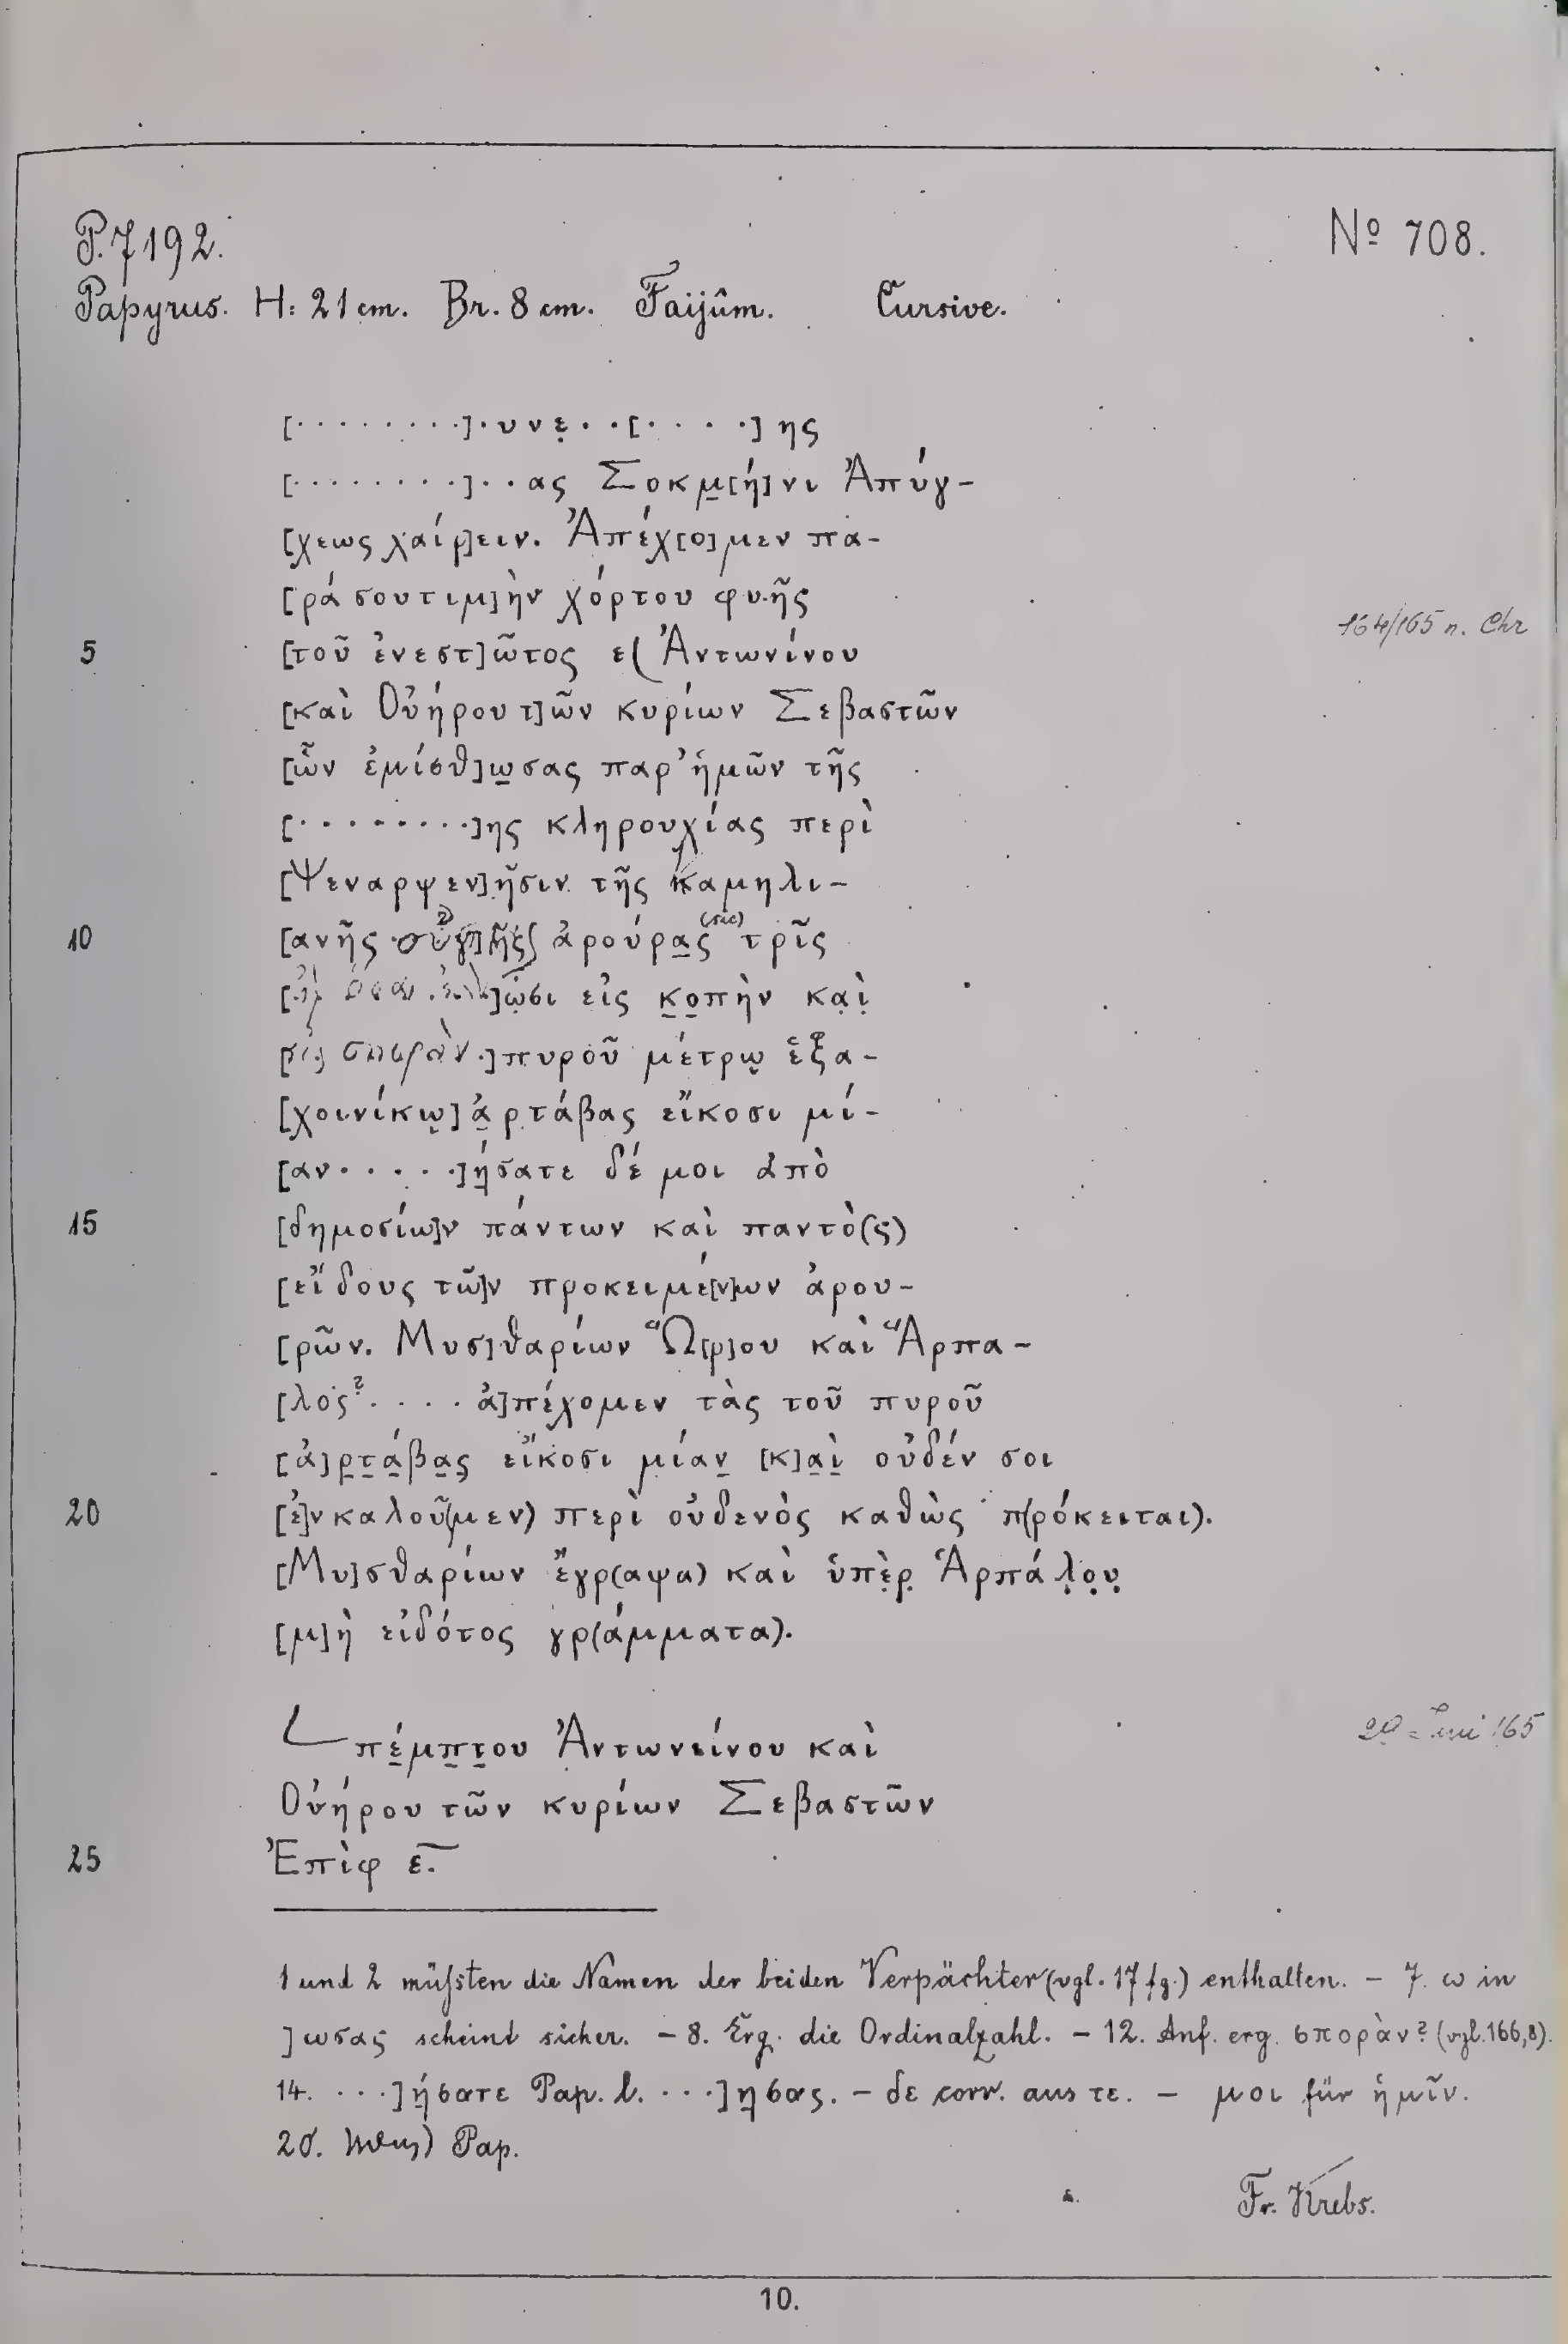 P. 7192. Nº 708.
Papyrus. H: 21 cm. Br. 8 cm. Faijûm. Cursive.
[········]·υνε̣··[····]ης
[········]··ας Σοκμ̣[ή]νι Ἀπύγ-
[χεως χαίρ]ειν. Ἀπέχ[ο]μεν πα-
[ρά σου τιμ]ὴν χόρτου φυῆς
164/165 n. Chr
5 [τοῦ ἐνεστ]ῶτος ε( Ἀντωνίνου
[καὶ Οὐήρου τ]ῶν κυρίων Σεβαστῶν
[ὧν ἐμίσθ]ω̣σας παρ' ἡμῶν τῆς
[········]ης κληρουχίας περὶ
[Ψεναρψεν]ῆσιν τῆς καμηλι-
10 [ανῆς ἀρούρα̣ς (sic) τρῖς
]ῶ̣σι εἰς κ̣ο̣πὴν κα̣ὶ̣
σπορὰν·]πυροῦ μέτρῳ ἑξα-
[χοινίκῳ] ἀ̣ρτάβας εἴκοσι μί-
[αν·····]ή̣σατε δέ μοι ἀπὸ
15 [δημοσίω]ν πάντων καὶ παντὸ(ς)
[εἴδους τῶ]ν προκειμέ[ν]ων ἀρου-
[ρῶν. Μυσ]θαρίων Ὥ[ρ]ου καὶ Ἅρπα-
[λος?···· ἀ]πέχομεν τὰς τοῦ πυροῦ
[ἀ]ρ̣τ̣ά̣βα̣ς̣ εἴκοσι μίαν̣ [κ]α̣ὶ̣ οὐδέν σοι
20 [ἐ]νκαλοῦ(μεν) περὶ οὐδενὸς καθὼς π(ρόκειται).
[Μυ]σθαρίων ἔγρ(αψα) καὶ ὑπὲ̣ρ̣ Ἁρπάλ̣ο̣υ̣
[μ]ὴ εἰδότος γρ(άμματα).
L πέ̣μπ̣τ̣ου Ἀντωνείνου καὶ
Οὐήρου τῶν κυρίων Σεβαστῶν
25 Ἐπὶφ ε̅.
1 und 2 müßten die Namen der beiden Verpächter (vgl. 17 fg.) enthalten. – 7. ω in
]ωσας scheint sicher. – 8. Erg. die Ordinalzahl. – 12. Anf. erg. σπορὰν? (vgl. 166,8).
14. ···]ή̣σατε Pap. l. ···]η̣σας. – δε corr. aus τε. – μοι für ἡμῖν.
20. Pap.
Fr. Krebs.
10.